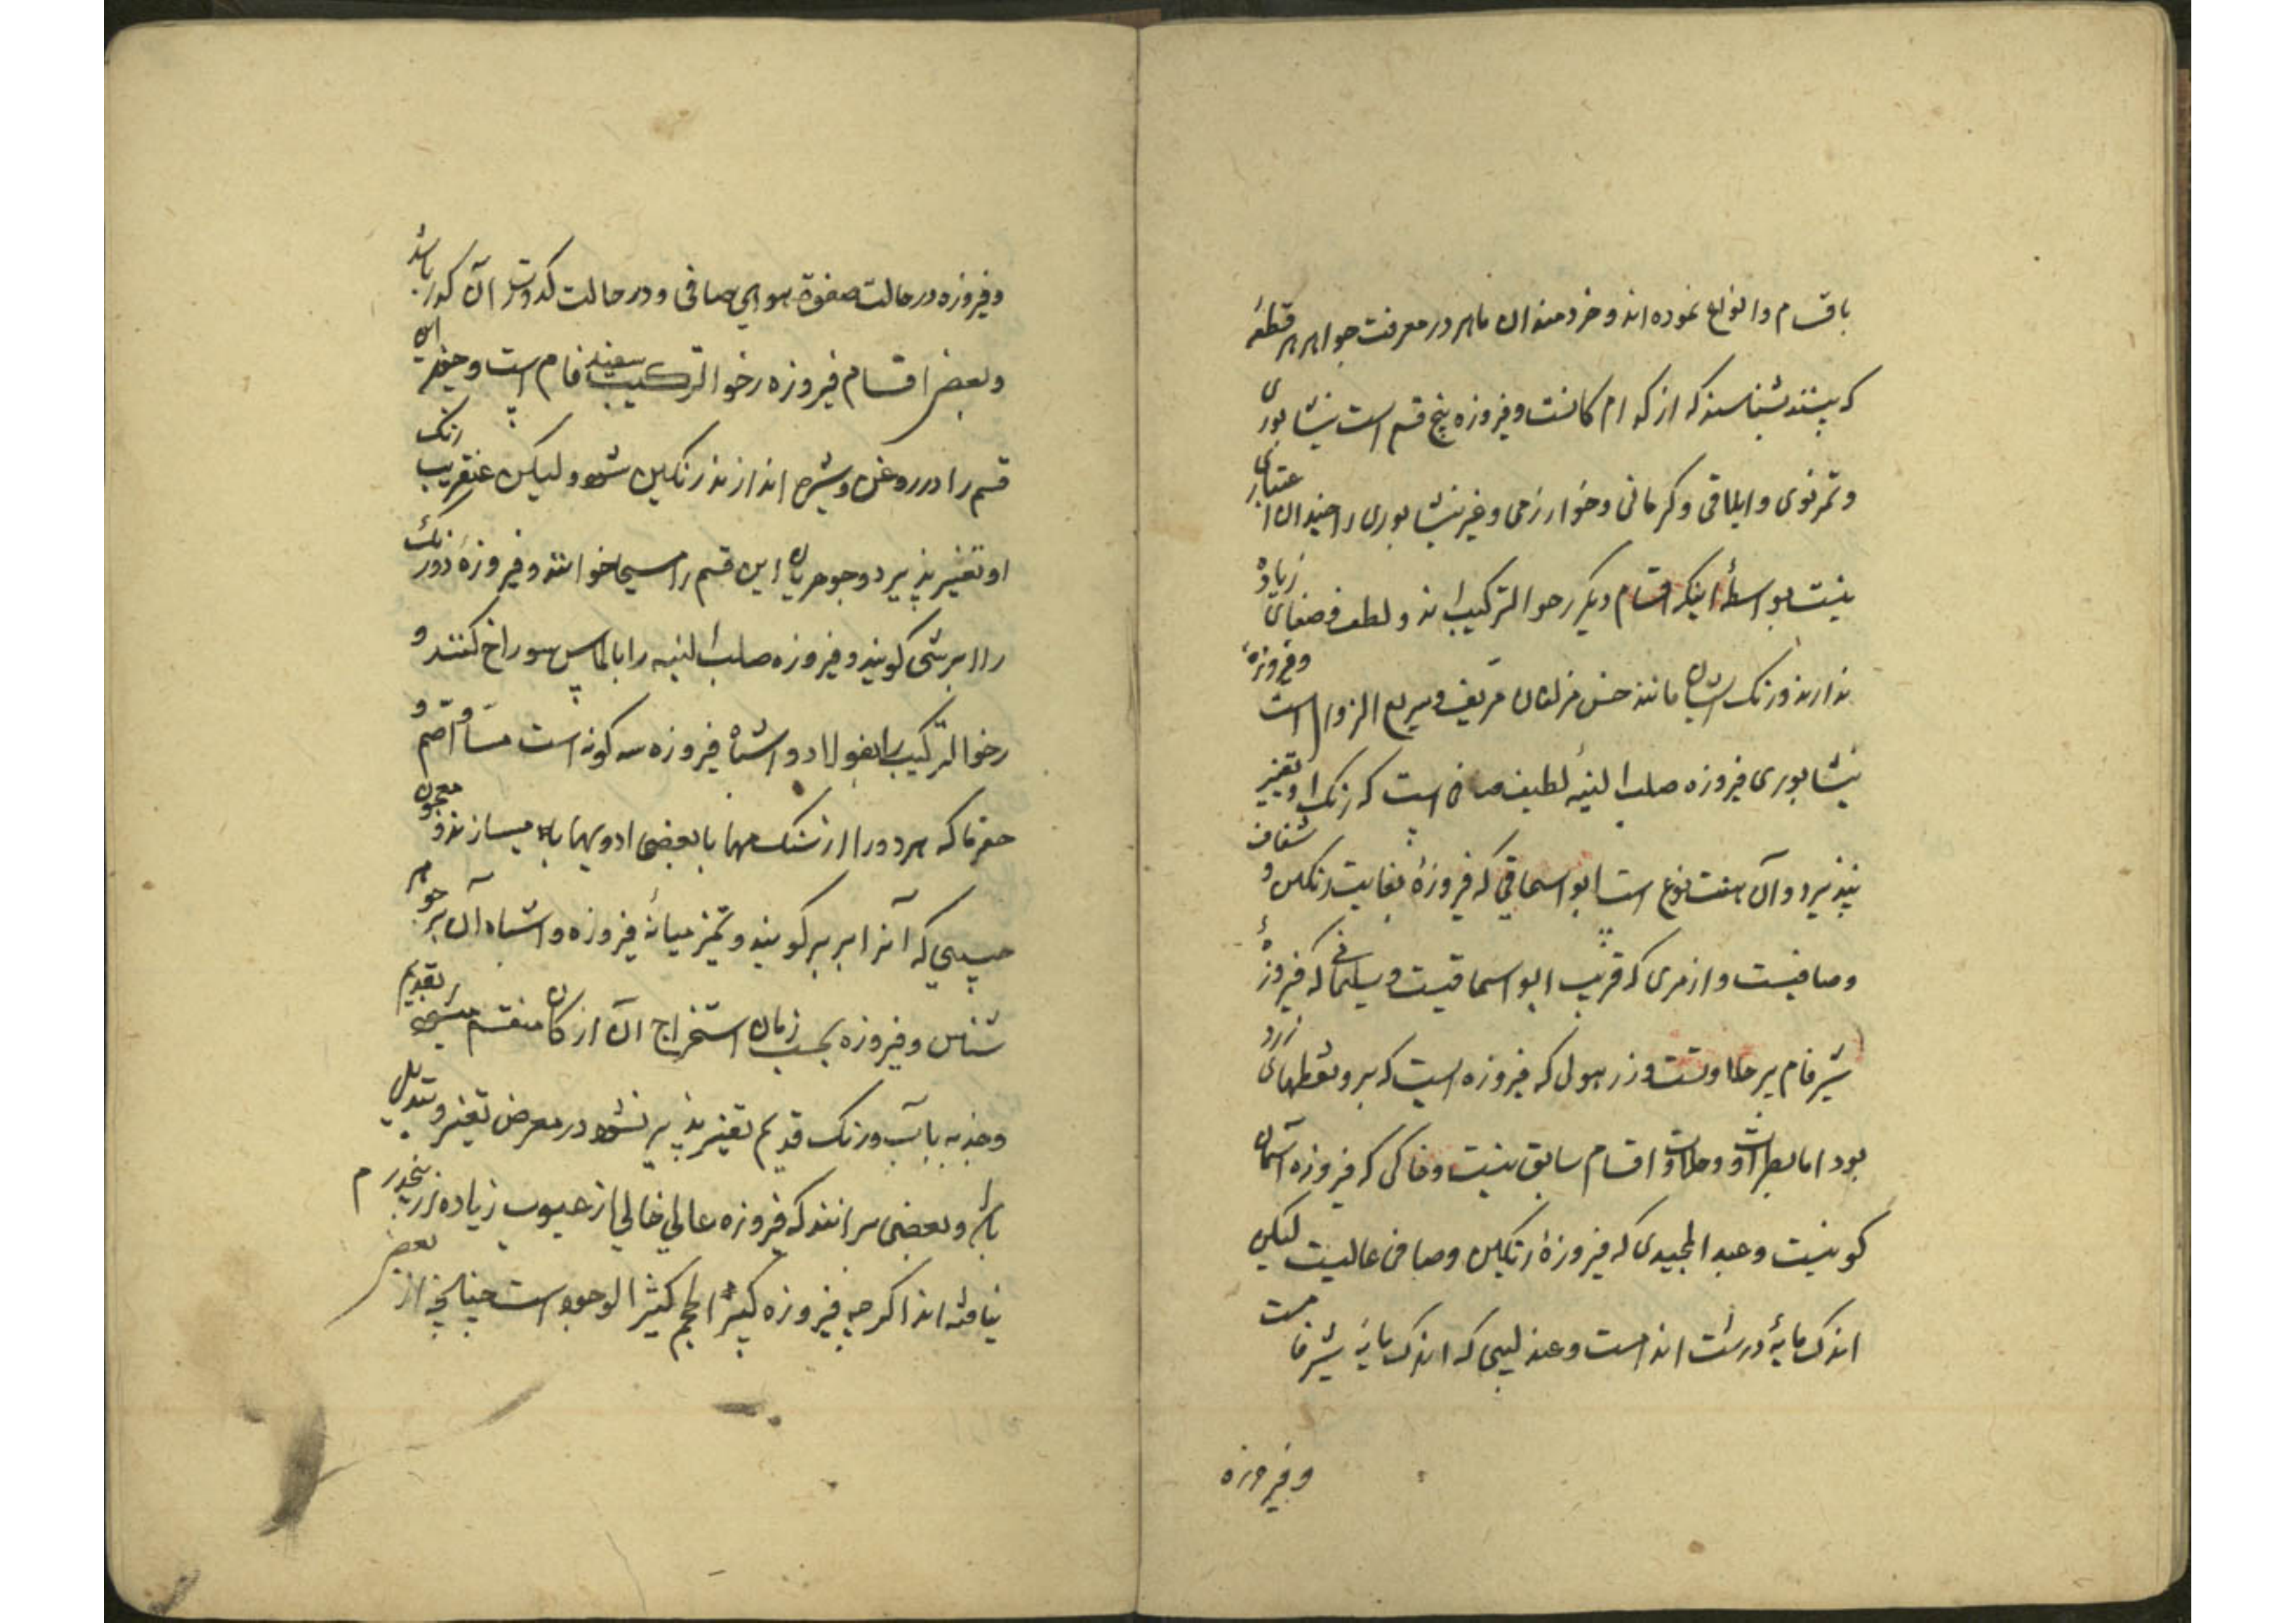 باقسام و انواع نموده اند و خردمندان ماهر در معرفت جواهر هر قطعهٔ
که بینند بشناسند که از کدام کانست و فیروزه پنج قسم است نیشابوری
و ایلاقی و کرمانی و خوارزمی و غیر نیشابوری را چندان اعتباری
نیست بواسطهٔ اینکه اقسام دیکر رخوالترکیب اند و لطف و صفای زیاده
ندارند و رنک ایشان مانند حسن مزلفان و سریع الزوال است و فیروزهٔ
نیشابوری فیروزه صلب البنیهٔ لطیف صافی است که رنک او تغییر
نپذیرد و آن هفت نوع است ابواسحاقی که فیروزهٔ بغایت رنکین و شفاف
و صافیست و ازهری که قریب ابواسحاقیست و سلیمانی که فیروزهٔ
شیرفام پر حلاوتست و زرهونی که فیروزه است که برو نقطهای زرد
بود اما بطراوت و حلاوت اقسام سابق نیست و خاکی که فیروزه آسمان
کونیست و عبدالمجیدی که فیروزهٔ رنکین و صافی عالیست لیکن
اندک مایهٔ درشت اندامست و عندلیبی که اندک مایهٔ شیرفامست
و فیروزه
و فیروزه در حالت صفوة هوای صافی و در حالت کدورت آن کدر باشد
و بعضی اقسام فیروزه رخوالترکیب سفید فام است و چون این
قسم را در روغن و شیره اندازند رنکین شود ولیکن عنقریب رنک
او تغییر پذیرد و جوهریان این قسم را مسیحا خوانند و فیروزهٔ دو رنک
را ابرشی کویند و فیروزه صلب البنیه را بالماس سوراخ کنند و
رخوالترکیب را بفولاد و اشباه فیروزه سه کونه است مینا و اصم و
که هر دو را از سنک مها با بعضی ادویها میسازند و معجون
حبیبی که آنرا بربر کویند و تمیز میانهٔ فیروزه و اشباه آن بر جوهر
شناس و فیروزه بحسب زمان استخراج آن از کان منقسم میشود بقدیم
و جدید با آب و رنک قدیم تغییر پذیر نشود در معرض تغییر و تبدیل
باشد و بعضی برانند که فیروزه عالی خالی از عیوب زیاده از پنجدرم
نیافته اند اکرچه فیروزه کبیر الحجم کثیر الوجود است چنانچه از بعضی